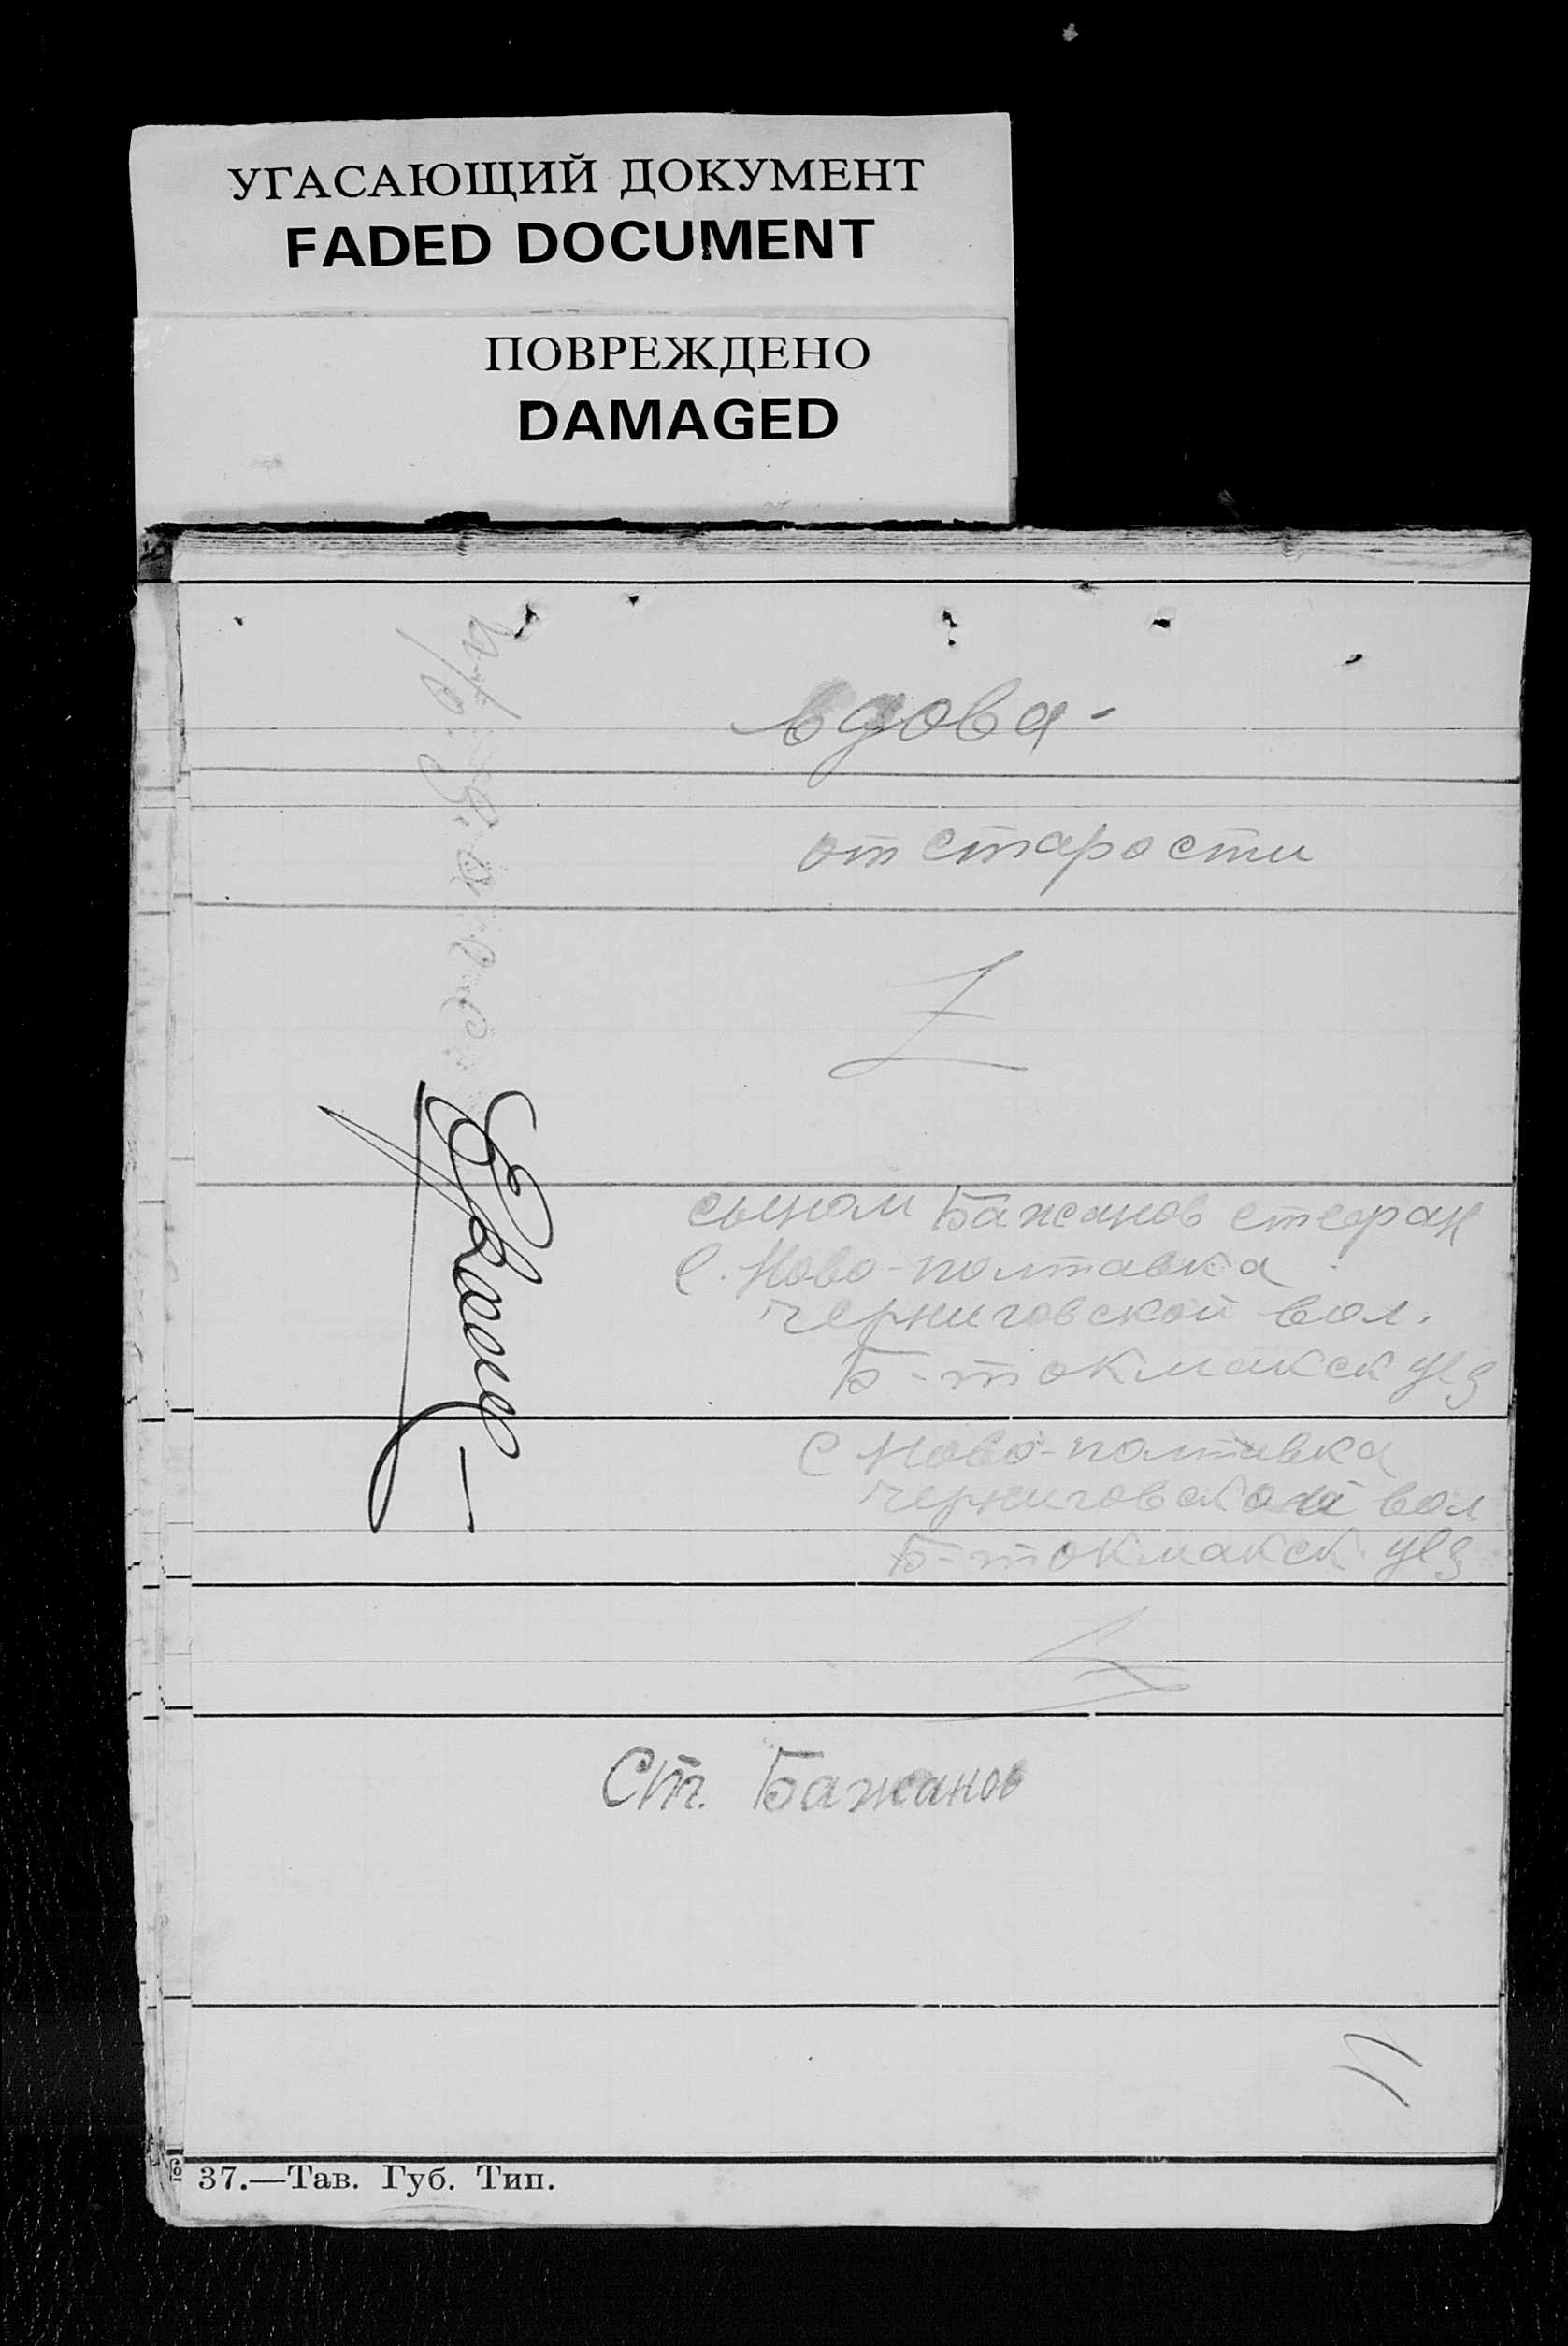 УГАСАЮЩИЙ ДОКУМЕНТ
FADED DOCUMENT
ПОВРЕЖДЕНО
DAMAGED
вдова -
от старости
сыном Бажанов стефан
с. Ново-полтавка
черниговской вол.
Б-токмакск уез
С Ново-полтавка
черниговской вол
Б-токмакск. уез
Ст. Бажанов
37.—Тав. Губ. Тип.